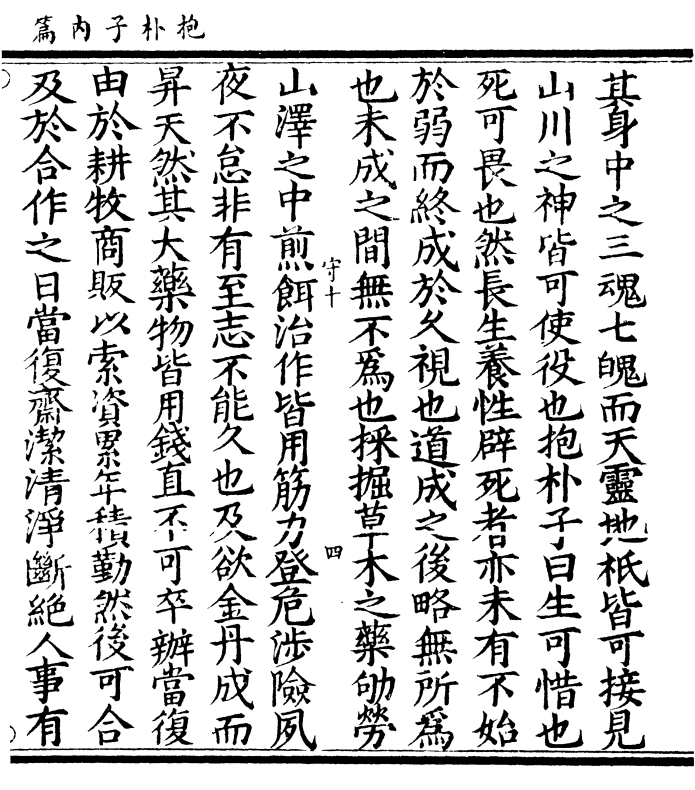 抱朴子內篇
其身中之三魂七魄而天靈地祇皆可接見
山川之神皆可使役也抱朴子曰生可惜也
死可畏也然長生養性辟死者亦未有不始
於弱而終成於久視也道成之後略無所爲
也未成之間無不爲也採掘草木之藥劬勞
守十
四
山澤之中煎餌治作皆用筋力登危涉險夙
夜不怠非有至志不能久也及欲金丹成而
昇天然其大藥物皆用錢直不可卒辦當復
由於耕牧商販以索資累年積勤然後可合
及於合作之日當復齋潔清淨斷絕人事有